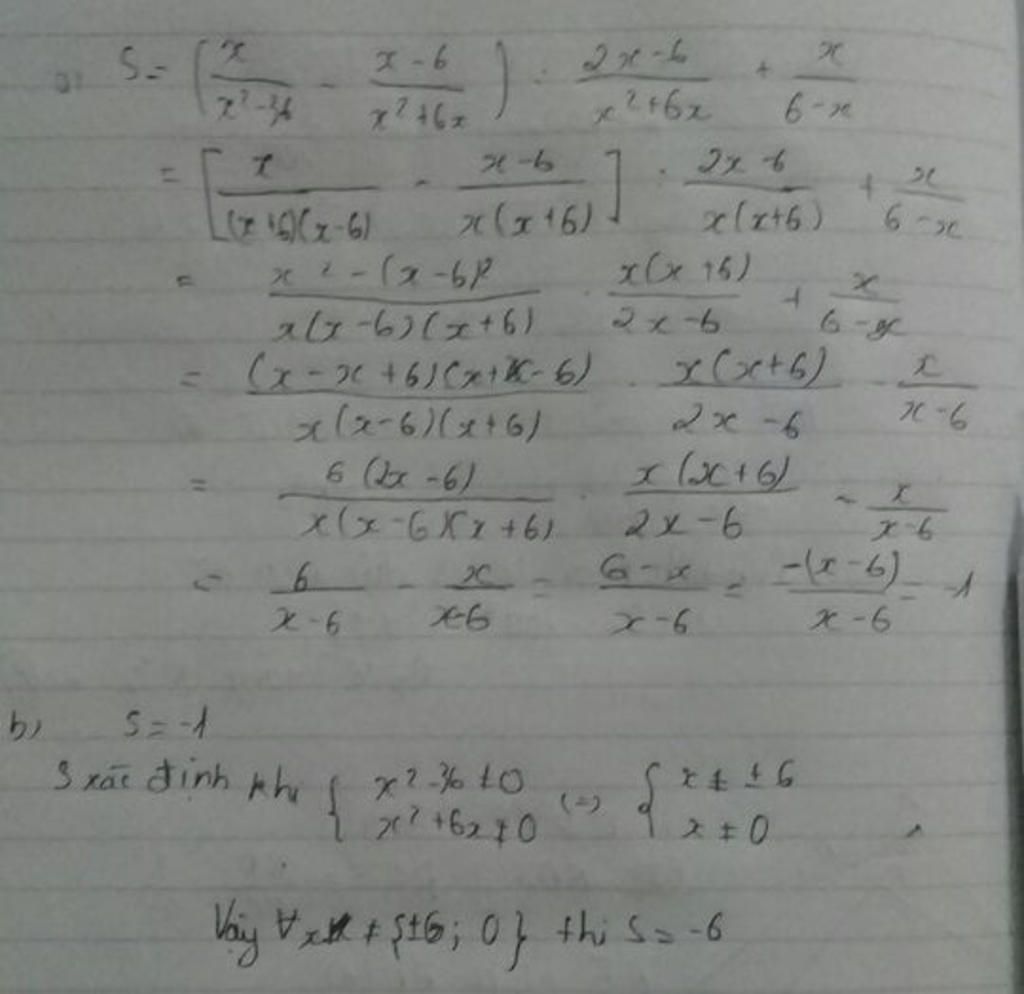 a) S = (x/(x² - 36) - (x - 6)/(x² + 6x)) : (2x - 6)/(x² + 6x) + x/(6 - x)
= [x/((x + 6)(x - 6)) - (x - 6)/(x(x + 6))] : (2x - 6)/(x(x + 6)) + x/(6 - x)
= (x² - (x - 6)²)/(x(x - 6)(x + 6)) . (x(x + 6))/(2x - 6) + x/(6 - x)
= ((x - x + 6)(x + x - 6))/(x(x - 6)(x + 6)) . (x(x + 6))/(2x - 6) - x/(x - 6)
= (6(2x - 6))/(x(x - 6)(x + 6)) . (x(x + 6))/(2x - 6) - x/(x - 6)
= 6/(x - 6) - x/(x - 6) = (6 - x)/(x - 6) = (-(x - 6))/(x - 6) = -1
b) S = -1
S xác định khi { x² - 36 ≠ 0 (=) { x ≠ ± 6
x² + 6x ≠ 0 x ≠ 0
Vậy ∀x ≠ {±6; 0} thì S = -6